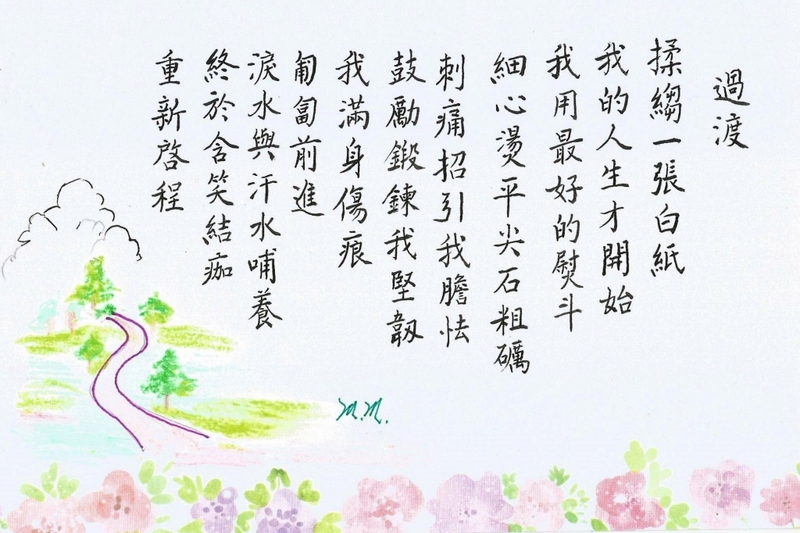 過渡
揉縐一張白紙
我的人生才開始
我用最好的熨斗
細心燙平尖石粗礪
刺痛招引我膽怯
鼓勵鍛鍊我堅韌
我滿身傷痕
匍匐前進
淚水與汗水哺養
終於含笑結痂
重新啓程